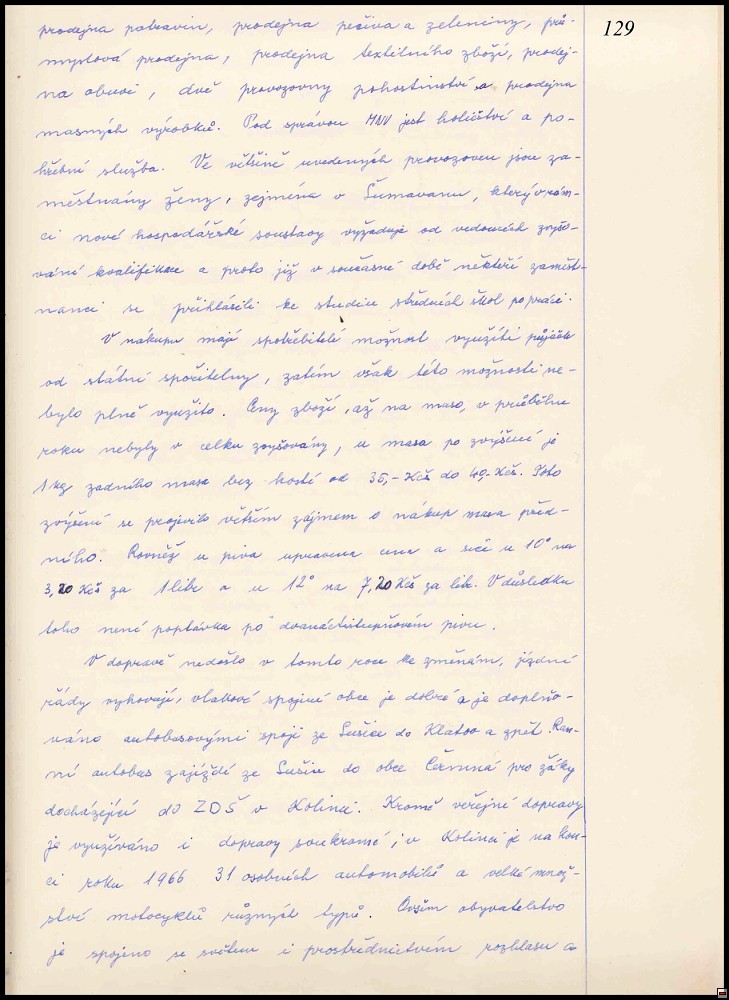 129
prodejna potravin, prodejna pečiva a zeleniny, prů-
myslová prodejna, prodejna textilního zboží, prodej-
na obuvi, dvě provozovny pohostinství a prodejna
masných výrobků. Pod správou MNV jest holičství a po-
hřební služba. Ve většině uvedených provozoven jsou za-
městnány ženy, zejména v Šumavanu, který v rám-
ci nové hospodářské soustavy vyžaduje od vedoucích zvyšo-
vání kvalifikace a proto již v současné době někteří zaměst-
nanci se přihlásili ke studiu středních škol po práci.
V nákupu mají spotřebitelé možnost využíti půjček
od státní spořitelny, zatím však této možnosti ne-
bylo plně využito. Ceny zboží, až na maso, v průběhu
roku nebyly v celku zvyšovány, u masa po zvýšení je
1 kg zadního masa bez kosti od 35,- Kčs do 40,- Kčs. Toto
zvýšení se projevilo větším zájmem o nákup masa před-
ního. Rovněž u piva upravena cena a sice u 10° na
3,20 Kčs za 1 litr a u 12° na 7,20 Kčs za litr. V důsledku
toho není poptávka po dvanáctistupňovém pivu.
V dopravě nedošlo v tomto roce ke změnám, jízdní
řády vyhovují, vlakové spojení obce je dobré a je doplňo-
váno autobusovými spoji ze Sušice do Klatov a zpět. Ran-
ní autobus zajíždí ze Sušice do obce Černná pro žáky
docházející do ZDŠ v Kolinci. Kromě veřejné dopravy
je využíváno i dopravy soukromé; v Kolinci je na kon-
ci roku 1966 31 osobních automobilů a velké množ-
ství motocyklů různých typů. Ovšem obyvatelstvo
je spojeno se světem i prostřednictvím rozhlasu a